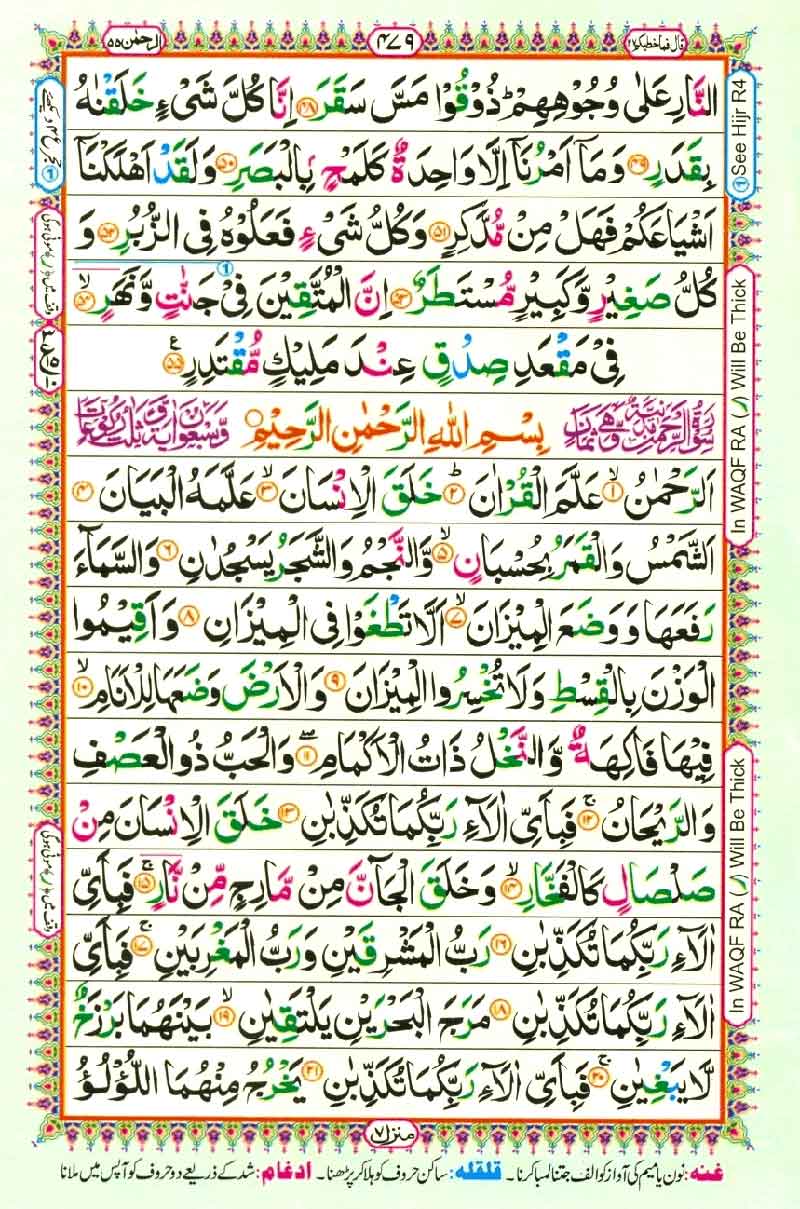 قال فما خطبکم ۲۷
۴۷۹
الرحمٰن ۵۵
النَّارِ عَلٰى وُجُوْهِهِمْ ؕ ذُوْقُوْا مَسَّ سَقَرَ ﴿۴۸﴾ اِنَّا كُلَّ شَىْءٍ خَلَقْنٰهُ
بِقَدَرٍ ﴿۴۹﴾ وَمَاۤ اَمْرُنَاۤ اِلَّا وَاحِدَةٌ كَلَمْحٍۭ بِالْبَصَرِ ﴿۵۰﴾ وَلَقَدْ اَهْلَكْنَاۤ
اَشْيَاعَكُمْ فَهَلْ مِنْ مُّدَّكِرٍ ﴿۵۱﴾ وَكُلُّ شَىْءٍ فَعَلُوْهُ فِى الزُّبُرِ ﴿۵۲﴾ وَ
كُلُّ صَغِيْرٍ وَّكَبِيْرٍ مُّسْتَطَرٌ ﴿۵۳﴾ اِنَّ الْمُتَّقِيْنَ فِىْ جَنّٰتٍ وَّنَهَرٍ ۙ﴿۵۴﴾
فِىْ مَقْعَدِ صِدْقٍ عِنْدَ مَلِيْكٍ مُّقْتَدِرٍ ﴿۵۵﴾
سُوْرَةُ الرَّحْمٰنِ مَدَنِيَّةٌ وَّهِىَ ثَمَانٌ
بِسْمِ اللّٰهِ الرَّحْمٰنِ الرَّحِيْمِ
وَّسَبْعُوْنَ اٰيَةً وَّثَلٰثُ رُكُوْعَاتٍ
اَلرَّحْمٰنُ ۙ﴿۱﴾ عَلَّمَ الْقُرْاٰنَ ؕ﴿۲﴾ خَلَقَ الْاِنْسَانَ ۙ﴿۳﴾ عَلَّمَهُ الْبَيَانَ ﴿۴﴾
اَلشَّمْسُ وَالْقَمَرُ بِحُسْبَانٍ ۙ﴿۵﴾ وَّالنَّجْمُ وَالشَّجَرُ يَسْجُدٰنِ ﴿۶﴾ وَالسَّمَآءَ
رَفَعَهَا وَوَضَعَ الْمِيْزَانَ ۙ﴿۷﴾ اَلَّا تَطْغَوْا فِى الْمِيْزَانِ ﴿۸﴾ وَاَقِيْمُوا
الْوَزْنَ بِالْقِسْطِ وَلَا تُخْسِرُوا الْمِيْزَانَ ﴿۹﴾ وَالْاَرْضَ وَضَعَهَا لِلْاَنَامِ ۙ﴿۱۰﴾
فِيْهَا فَاكِهَةٌ وَّالنَّخْلُ ذَاتُ الْاَكْمَامِ ﴿۱۱﴾ وَالْحَبُّ ذُو الْعَصْفِ
وَالرَّيْحَانُ ۚ﴿۱۲﴾ فَبِاَىِّ اٰلَاۤءِ رَبِّكُمَا تُكَذِّبٰنِ ﴿۱۳﴾ خَلَقَ الْاِنْسَانَ مِنْ
صَلْصَالٍ كَالْفَخَّارِ ۙ﴿۱۴﴾ وَخَلَقَ الْجَآنَّ مِنْ مَّارِجٍ مِّنْ نَّارٍ ۚ﴿۱۵﴾ فَبِاَىِّ
اٰلَاۤءِ رَبِّكُمَا تُكَذِّبٰنِ ﴿۱۶﴾ رَبُّ الْمَشْرِقَيْنِ وَرَبُّ الْمَغْرِبَيْنِ ۚ﴿۱۷﴾ فَبِاَىِّ
اٰلَاۤءِ رَبِّكُمَا تُكَذِّبٰنِ ﴿۱۸﴾ مَرَجَ الْبَحْرَيْنِ يَلْتَقِيٰنِ ۙ﴿۱۹﴾ بَيْنَهُمَا بَرْزَخٌ
لَّا يَبْغِيٰنِ ۚ﴿۲۰﴾ فَبِاَىِّ اٰلَاۤءِ رَبِّكُمَا تُكَذِّبٰنِ ﴿۲۱﴾ يَخْرُجُ مِنْهُمَا اللُّؤْلُؤُ
① See Hijr R4
In WAQF RA (ر) Will Be Thick
In WAQF RA (ر) Will Be Thick
منزل ۷
غنه: نون یا میم کی آواز کو الف جتنا لمبا کرنا۔ قلقله: ساکن حروف کو ہلا کر پڑھنا۔ ادغام: شد کے ذریعے دو حروف کو آپس میں ملانا